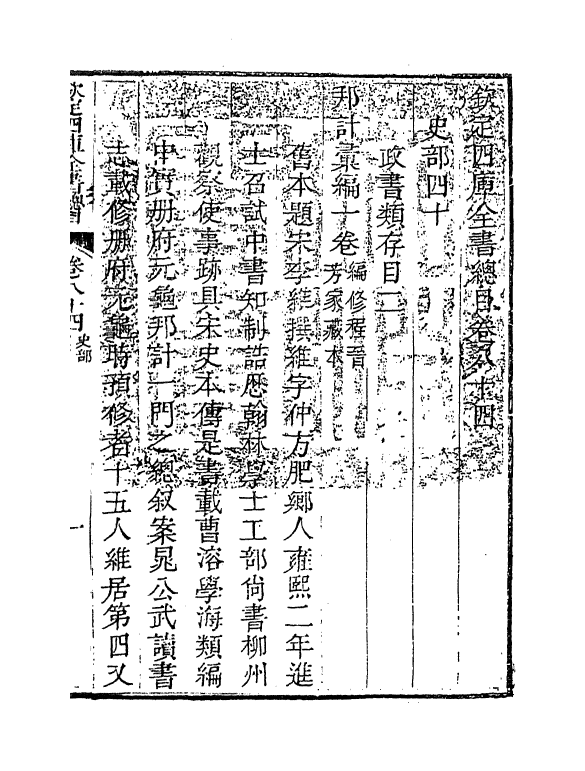 欽定四庫全書總目卷八十四
史部四十
政書類存目二
邦計彙編一卷編修程晉芳家藏本
舊本題宋李維撰維字仲方肥鄉人雍熙二年進
士召試中書知制誥歷翰林學士工部尚書柳州
觀察使事跡具宋史本傳是書載曹溶學海類編
中實册府元龜邦計一門之總叙案晁公武讀書
志載修册府元龜時預修者十五人維居第四又
欽定四庫全書總目
卷八十四
史部
一